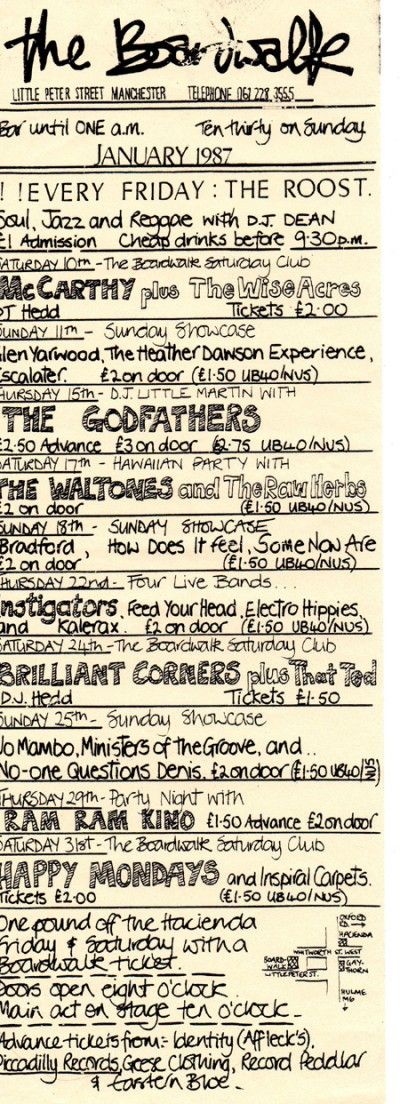 the Boardwalk
LITTLE PETER STREET MANCHESTER TELEPHONE 061 228 3555
Bar until ONE a.m. Ten thirty on Sunday
JANUARY 1987
! !EVERY FRIDAY : THE ROOST.
Soul, Jazz and Reggae with D.J. DEAN
£1 Admission Cheap drinks before 9·30p.m.
SATURDAY 10th - The Boardwalk Saturday Club
McCARTHY plus The Wise Acres
DJ Hedd Tickets £2·00
SUNDAY 11th - Sunday Showcase
Glen Yarwood, The Heather Dawson Experience,
Escalater. £2 on door (£1·50 UB40/NUS)
THURSDAY 15th - D.J. LITTLE MARTIN WITH
THE GODFATHERS
£2·50 Advance £3 on door (£2·75 UB40/NUS)
SATURDAY 17th - HAWAIIAN PARTY WITH
THE WALTONES and The Raw Herbs
£2 on door (£1·50 UB40/NUS)
SUNDAY 18th - SUNDAY SHOWCASE
Bradford, How Does It Feel, Some Now Are
£2 on door (£1·50 UB40/NUS)
THURSDAY 22nd - Four Live Bands...
Instigators, Feed Your Head, Electro Hippies,
and Kalerax. £2 on door (£1·50 UB40/NUS)
SATURDAY 24th - The Boardwalk Saturday Club
BRILLIANT CORNERS plus That Ted
D.J. Hedd Tickets £1·50
SUNDAY 25th - Sunday Showcase
Jo Mambo, Ministers of the Groove, and..
No-one Questions Denis. £2 on door (£1·50 UB40/NUS)
THURSDAY 29th - Party Night with
RAM RAM KINO £1·50 Advance £2 on door
SATURDAY 31st - The Boardwalk Saturday Club
HAPPY MONDAYS and Inspiral Carpets.
Tickets £2·00 (£1·50 UB40/NUS)
One pound off the Hacienda
Friday & Saturday with a
Boardwalk ticket.
Doors open eight o'clock
Main act on stage ten o'clock -
OXFORD RD. →
HACIENDA
WHITWORTH ST. WEST
BOARD-WALK
GAY-THORN
LITTLE PETER ST.
HULME
M6
Advance tickets from:- Identity (Affleck's),
Piccadilly Records, Geese Clothing, Record Peddlar
& Eastern Bloc -